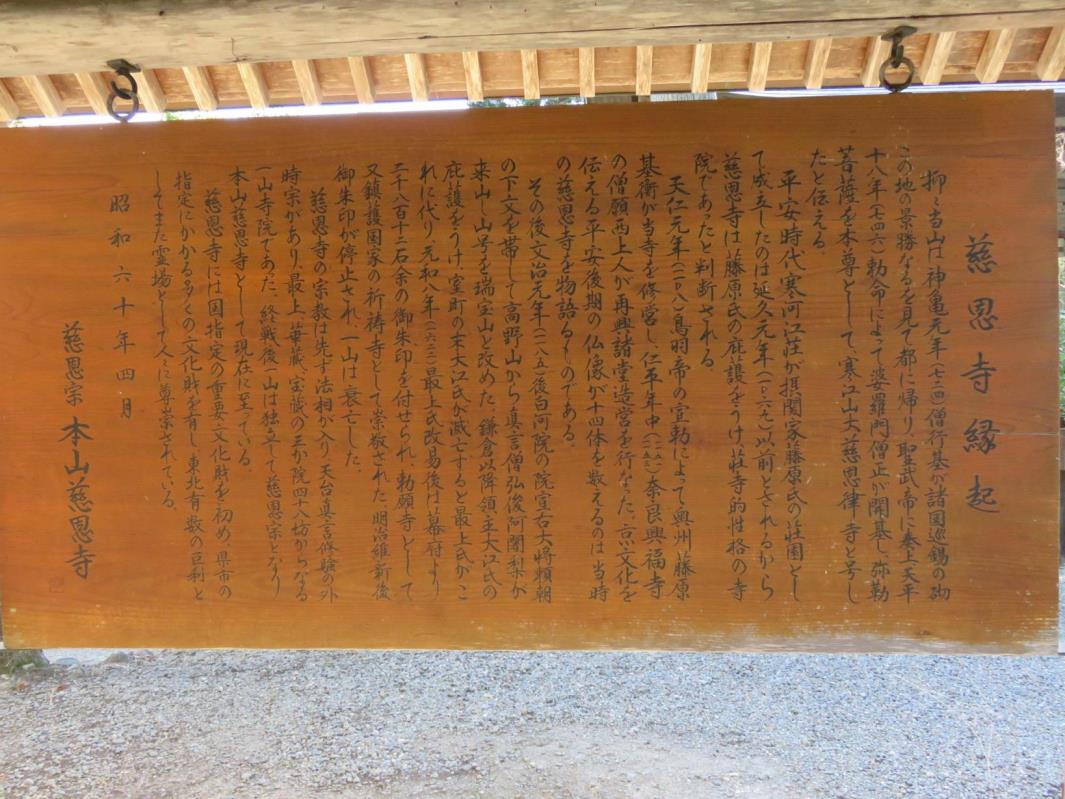 慈恩寺縁起
抑々当山は神亀元年(七二四)僧行基が諸国巡錫の砌
この地の景勝なるを見て都に帰り、聖武帝に奏上天平
十八年(七四六)勅命によって婆羅門僧正が開基し、弥勒
菩薩を本尊として、寒江山大慈恩律寺と号し
たと伝える。
平安時代寒河江荘が摂関家藤原氏の荘園とし
て成立したのは延久元年(一〇六九)以前とされるから
慈恩寺は藤原氏の庇護をうけ、荘寺的性格の寺
院であったと判断される。
天仁元年(一一〇八)鳥羽帝の宣勅によって奥州藤原
基衡が当寺を修営し、仁平年中(一一五〇)奈良興福寺
の僧願西上人が再興諸堂造営を行なった。京文化を
伝える平安後期の仏像が十四体を数えるのは当時
の慈恩寺を物語るものである。
その後文治元年(一一八五)後白河院の院宣右大将頼朝
の下文を帯して高野山から真言僧弘俊阿闍梨が
来山し山号を瑞宝山と改めた。鎌倉以降領主大江氏の
庇護をうけ、室町の末大江氏が滅亡すると最上氏がこ
れに代り、元和八年(一六二二)最上氏改易後は幕府より
二千八百十二石余の御朱印を付せられ、勅願寺として
又鎮護国家の祈祷寺として崇敬された。明治維新後
御朱印が停止され、一山は衰亡した。
慈恩寺の宗教は先ず法相が入り、天台真言修験の外
時宗があり、最上、華蔵、宝蔵の三か院四十八坊からなる
一山寺院であった。終戦後一山は独立して慈恩宗となり
本山慈恩寺として現在に至っている。
慈恩寺には国指定の重要文化財を初め、県市の
指定にかかる多くの文化財を有し、東北有数の巨刹と
しそまた霊場として人々に尊崇されている。
昭和六十年四月
慈恩宗 本山慈恩寺